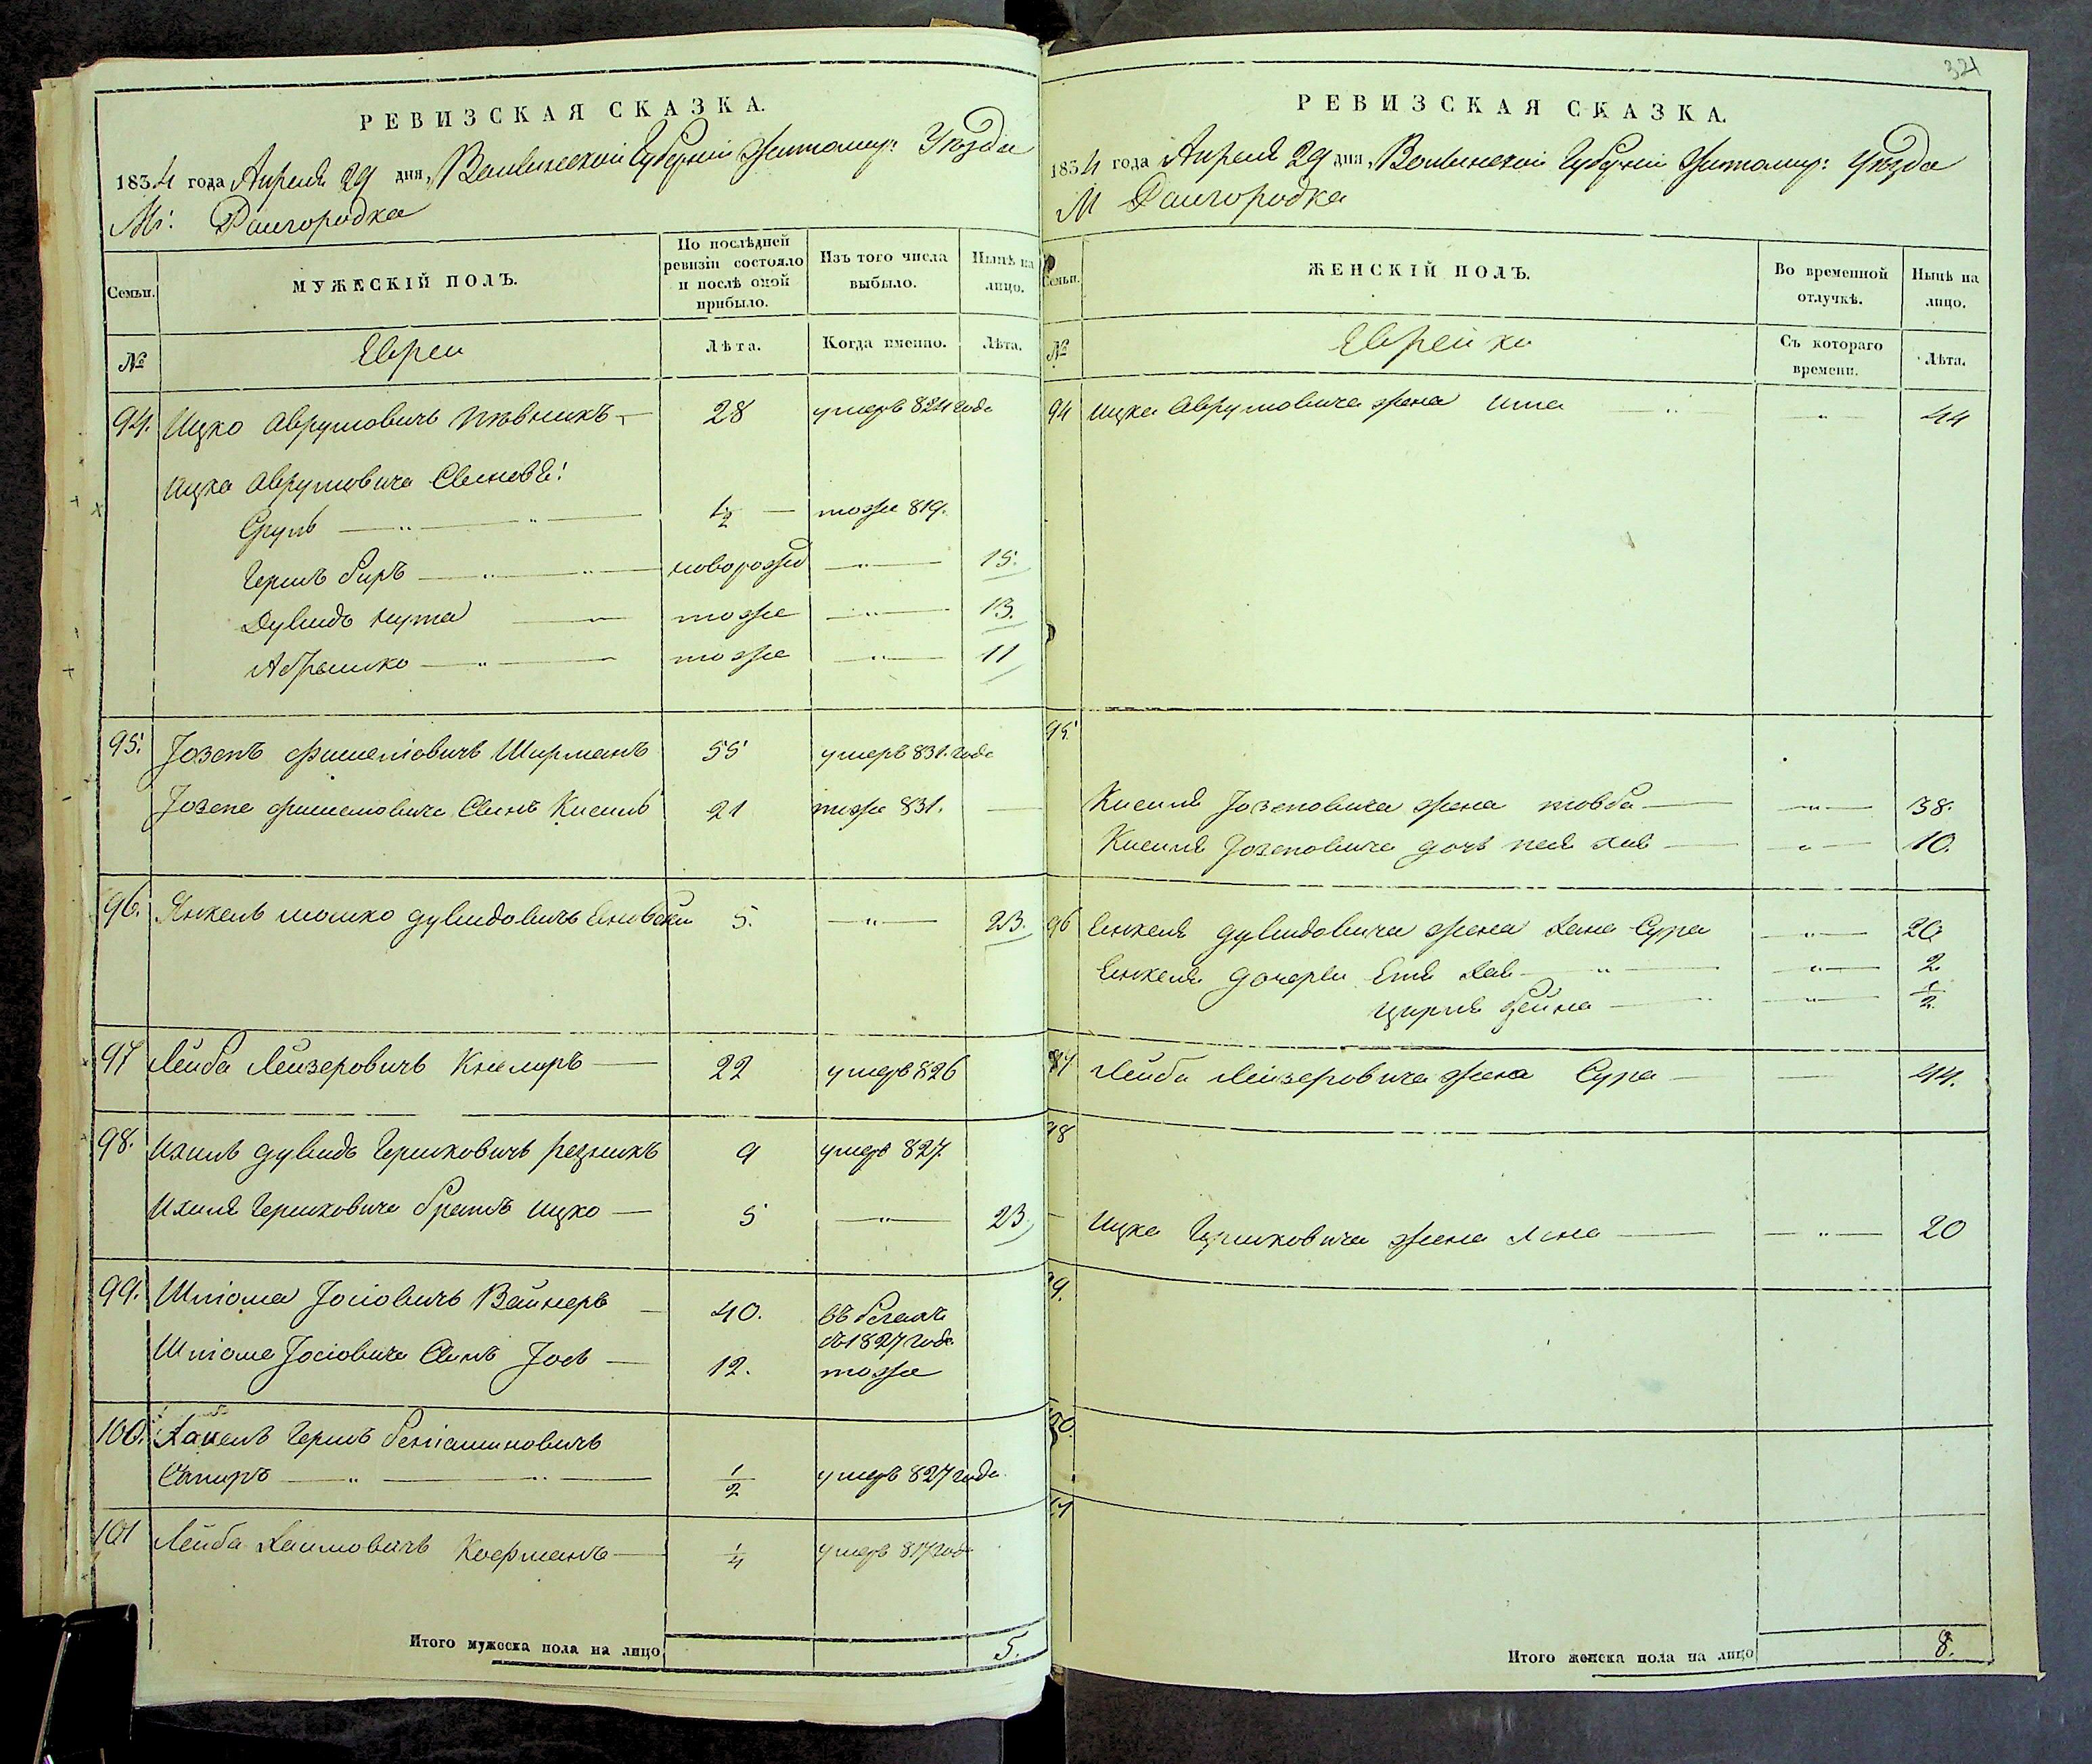 РЕВИЗСКАЯ СКАЗКА.
1834 года Апреля 29 дня, Волынской Губерніи Житомир: Уѣзда
М: Раигородка
Семьи.
МУЖЕСКІЙ ПОЛЪ.
По послѣдней ревизіи состояло и послѣ оной прибыло.
Изъ того числа выбыло.
Нынѣ на лицо.
№
Евреи
Лѣта.
Когда именно.
Лѣта.
94. Ицко Аврумовичь Пѣвникъ 28 умеръ 824 года
Ицка Аврумовича Сыновья:
Сруль 1/2 тоже 819.
Гершъ Беръ новорожд 15.
Дувидъ Нута тоже 13.
Абрамко тоже 11
95. Іозепъ Фишеліовичъ Ширманъ 55 умеръ 831. года
Іозепа Фишеліовича Сынъ Кисиль 21 тоже 831.
96. Янкель Шомко Дувидовичъ 5. 23.
97 Лейба Лейзеровичъ 22 умеръ 826
98. Ихиль Дувидъ Гершковичъ Резникъ 9 умеръ 827
Ихиля Гершковича братъ Ицко 5 23
99. Шліома Іосіовичъ Вайнеръ 40. въ бегахъ
съ 1827 года
Шліома Іосіовича Сынъ Іось 12. тоже
100. Гершъ Беніаминовичъ
Сапиръ 1/2 умеръ 827 года
101 Лейба Хаимовичъ Кофманъ 1/4 умеръ 817 год
Итого мужеска пола на лицо 5.
321
РЕВИЗСКАЯ СКАЗКА.
1834 года Апреля 29 дня, Волынской Губерніи Житомир: Уѣзда
М Раигородка
Семьи.
ЖЕНСКІЙ ПОЛЪ.
Во временной отлучкѣ.
Нынѣ на лицо.
№
Еврейки
Съ котораго времени.
Лѣта.
94 Ицка Аврумовича жена Ита 44
95
Кисиля Іозеповича жена Товба 38.
Кисиля Іозеповича дочь 10.
96 Енкеля Дувидовича жена Хана Сура 20
Енкеля дочери Етя Хая 2
Цирля Бейна 1/2
97 Лейби Лейзеровича жена Сура 44.
98
Ицка Гершковича жена 20
99.
100.
101
Итого женска пола на лицо 8.